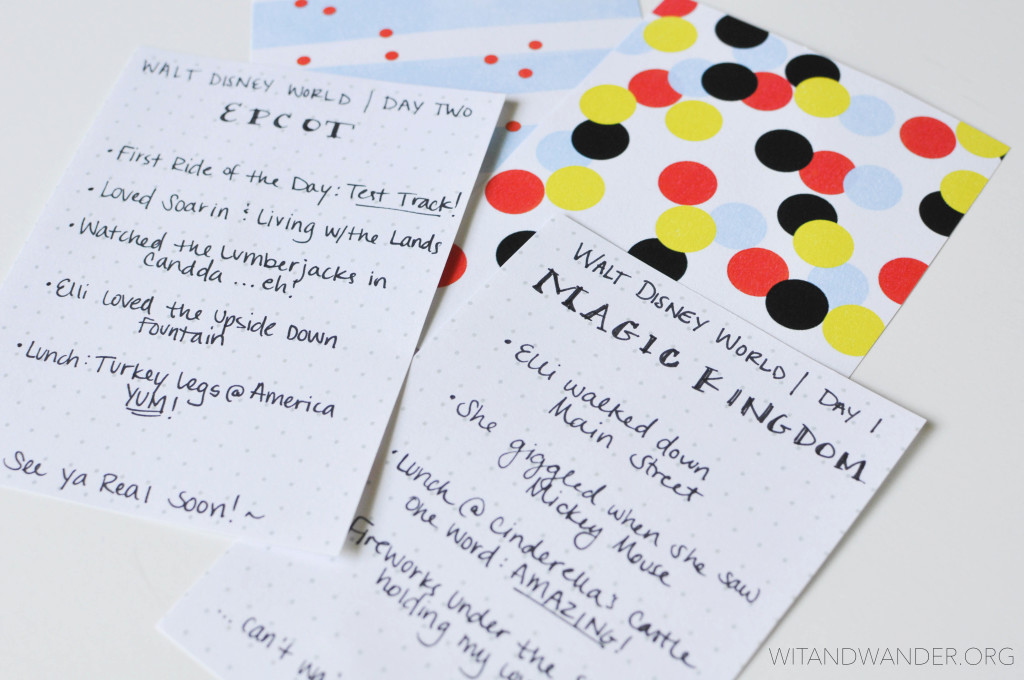 WALT DISNEY WORLD | DAY TWO
EPCOT
• First Ride of the Day: Test Track!
• Loved Soarin & Living w/the Lands
• Watched the Lumberjacks in
Candda ... eh?
• Elli Loved the Upside Down
Fountain
• Lunch: Turkey Legs @ America
YUM!
See ya Real Soon! ~
WALT DISNEY WORLD | DAY 1
MAGIC KINGDOM
• Elli walked down
Main Street
• She giggled when she saw
Mickey Mouse
• Lunch @ Cinderella's Castle
one word: AMAZING!
Fireworks under the
holding my
... can't
WITANDWANDER.ORG